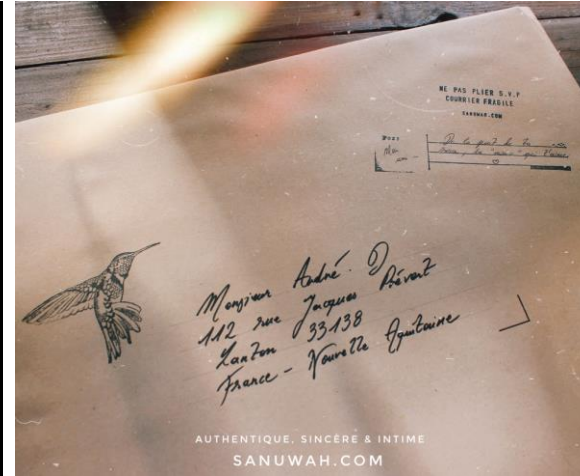 NE PAS PLIER S.V.P
COURRIER FRAGILE
SANUWAH.COM
Pour
Monsieur André. D
112 rue Jacques Prévert
Lanton 33138
France - Nouvelle Aquitaine
AUTHENTIQUE, SINCÈRE & INTIME
SANUWAH.COM